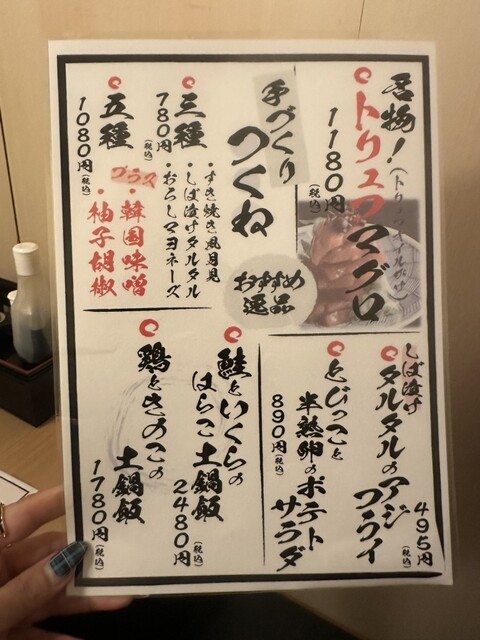 名物！
（トリュフオイルがけ）
トリュフマグロ
1180円
（税込）
手づくり
つくね
おすすめ
逸品
三種
780円
（税込）
・すき焼き風月見
・しば漬けタルタル
・おろしマヨネーズ
五種
1080円
（税込）
プラス
・韓国味噌
・柚子胡椒
しば漬け
タルタルの
アジフライ
495円
（税込）
とびっこと
半熟卵の
ポテト
サラダ
890円（税込）
鮭といくらの
はらこ土鍋飯
2480円
（税込）
鶏ときのこの
土鍋飯
1780円
（税込）